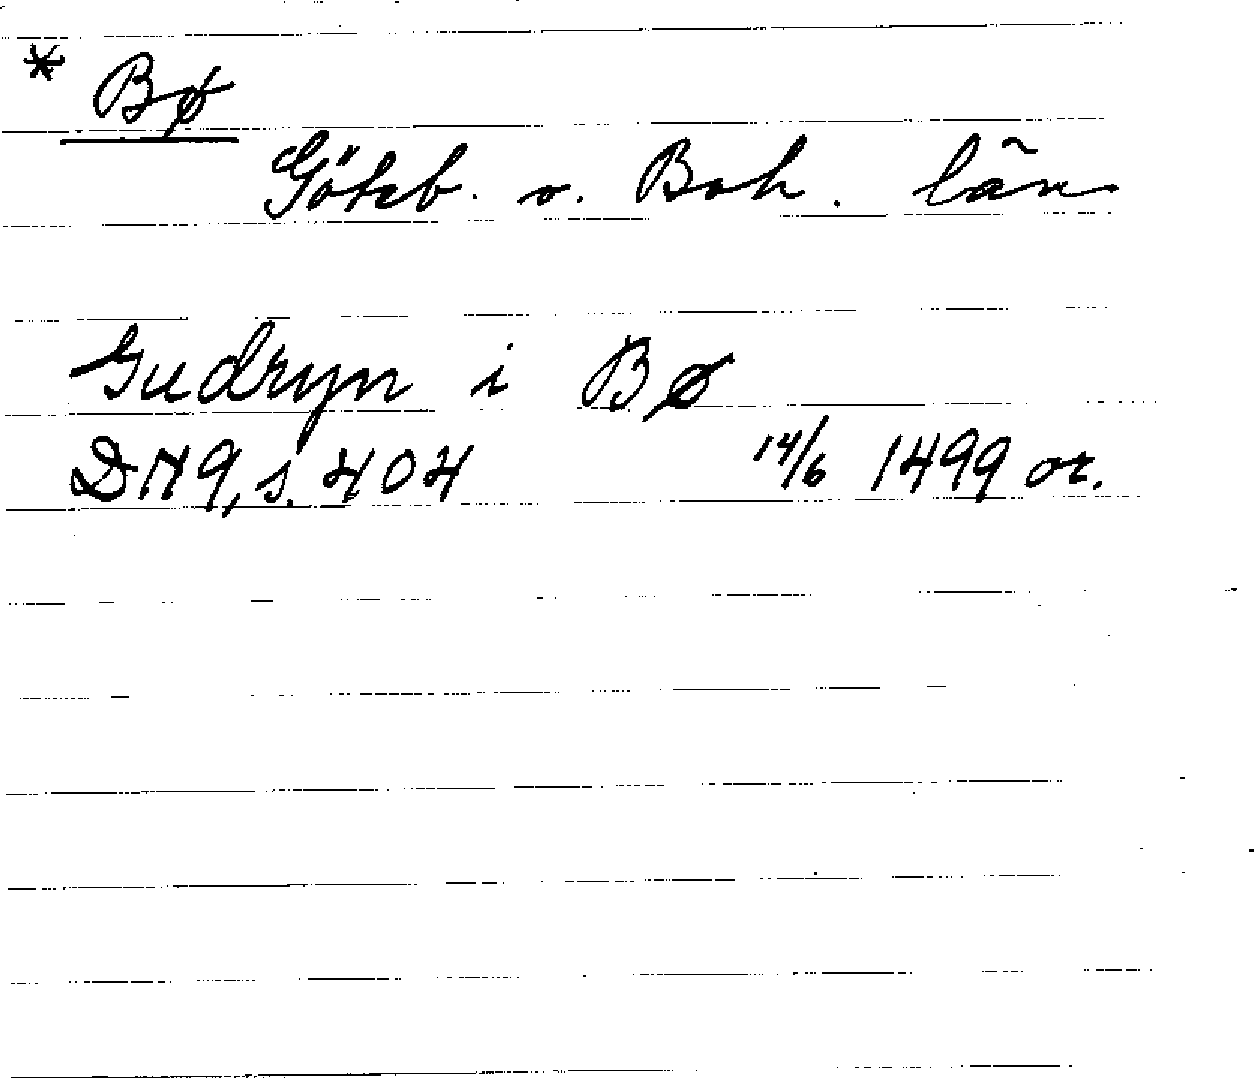 * Bø
Göteb. o. Boh. län
Gudryn i Bø
DN 9, s. 404 14/6 1499 or.